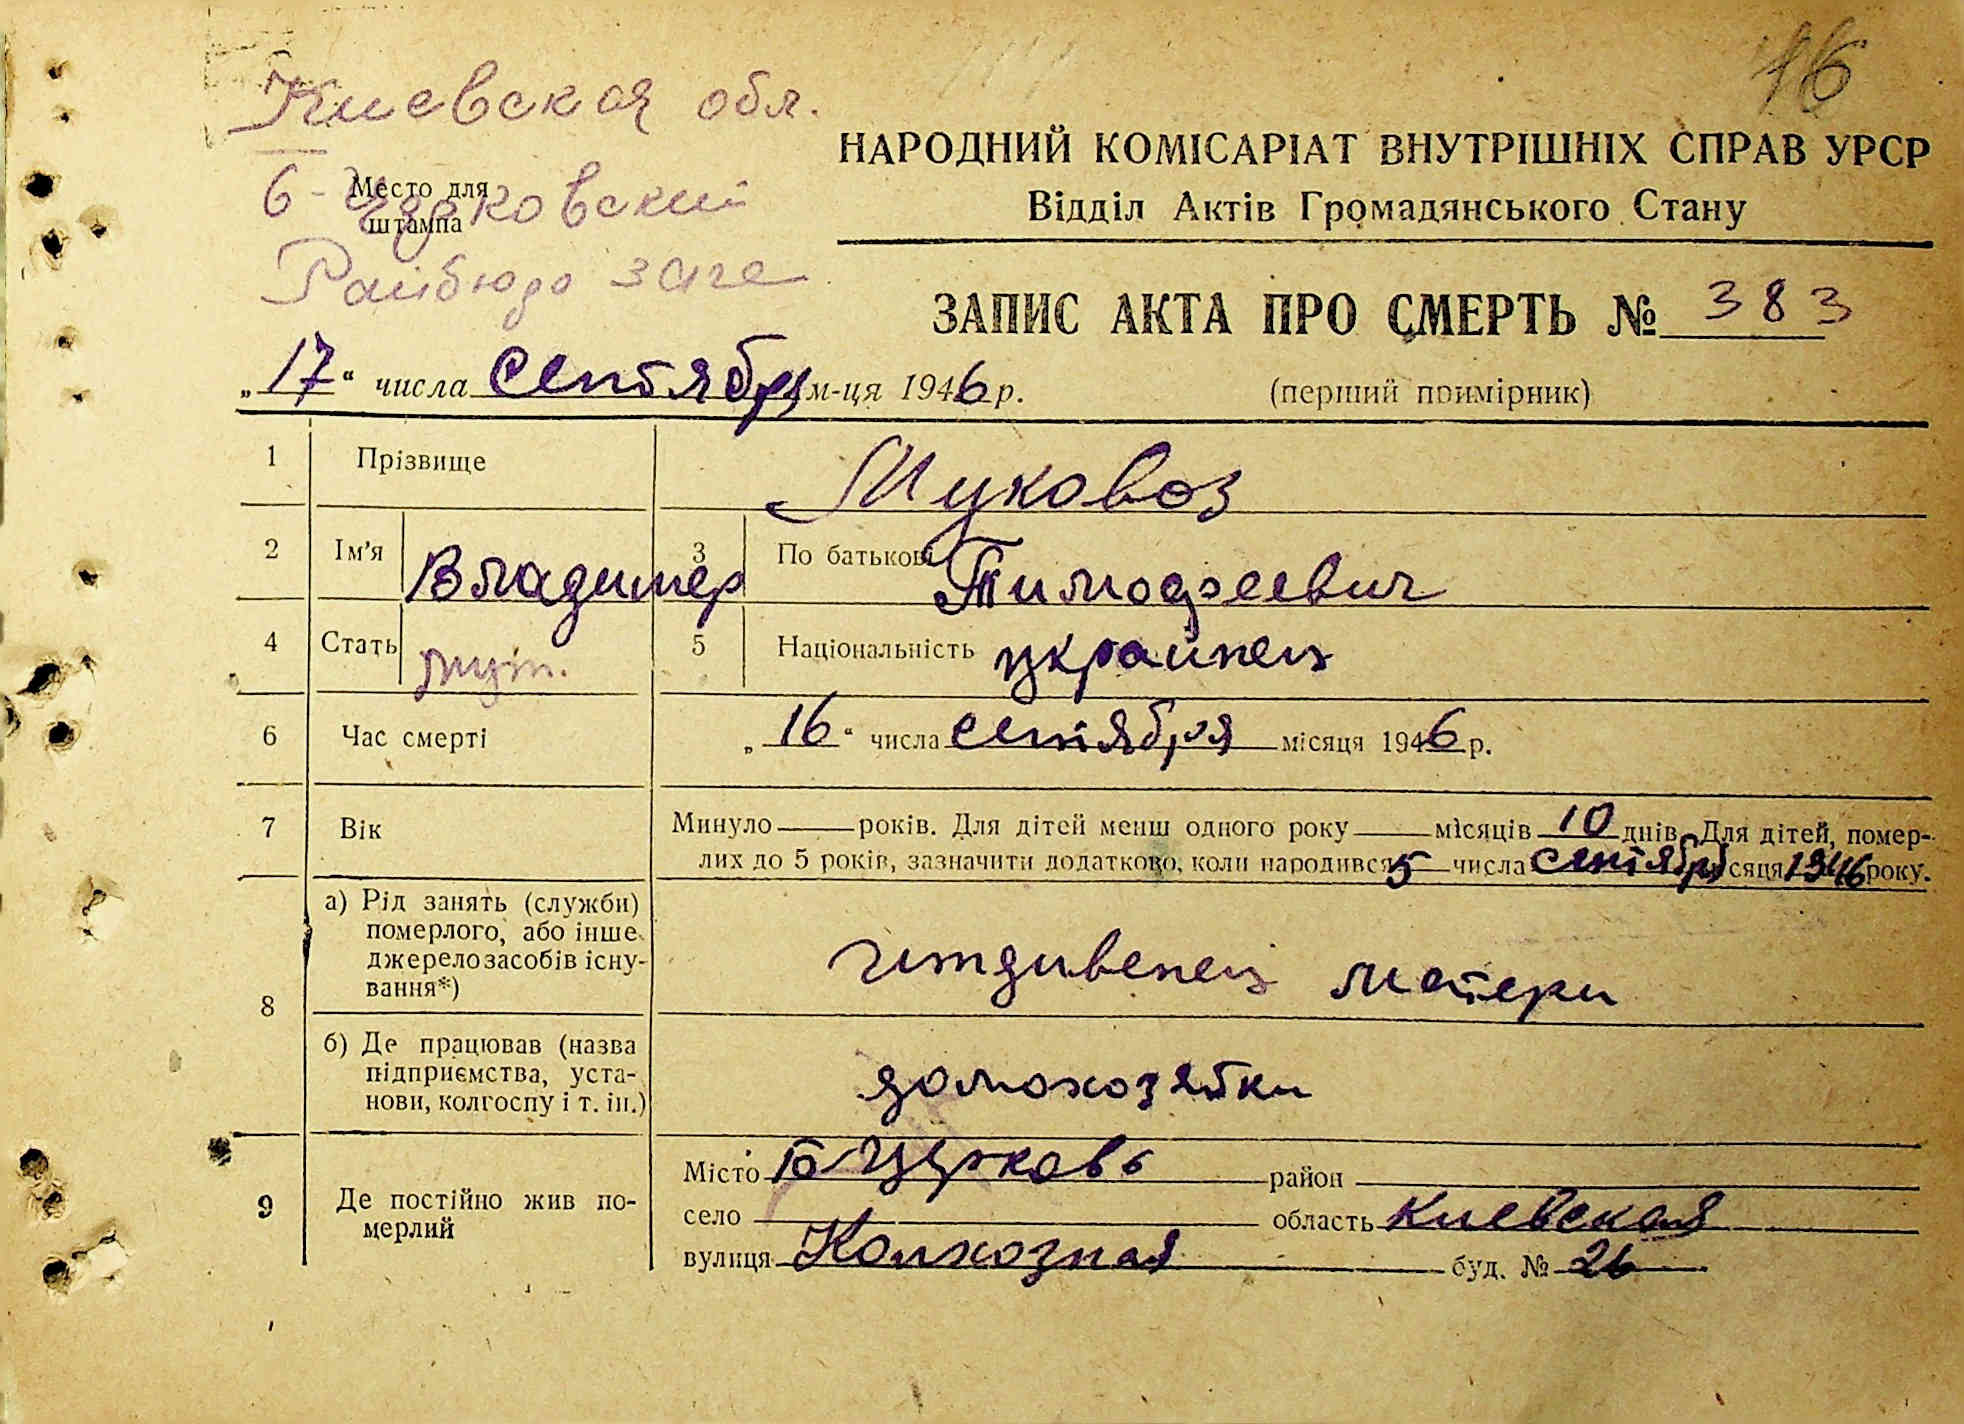 16
Киевская обл.
Б-Церковский
Место для
штампа
Райбюро загс
НАРОДНИЙ КОМІСАРІАТ ВНУТРІШНІХ СПРАВ УРСР
Відділ Актів Громадянського Стану
ЗАПИС АКТА ПРО СМЕРТЬ № 383
„17“ числа сентября м-ця 1946 р.
(перший примірник)
1 Прізвище Муковоз
2 Ім'я Владимер 3 По батькові Тимофеевич
4 Стать муж. 5 Національність украинец
6 Час смерті „16“ числа сентября місяця 1946 р.
7 Вік Минуло — років. Для дітей менш одного року — місяців 10 днів. Для дітей, помер-
лих до 5 років, зазначити додатково, коли народився 5 числа сентября місяця 1946 року.
8 а) Рід занять (служби)
померлого, або інше
джерело засобів існу-
вання*)
иждивенец матери
б) Де працював (назва
підприємства, уста-
нови, колгоспу і т. ін.)
домохозяйки
9 Де постійно жив по-
мерлий
Місто Б-Церковь район
село область Киевская
вулиця Колхозная буд. № 26